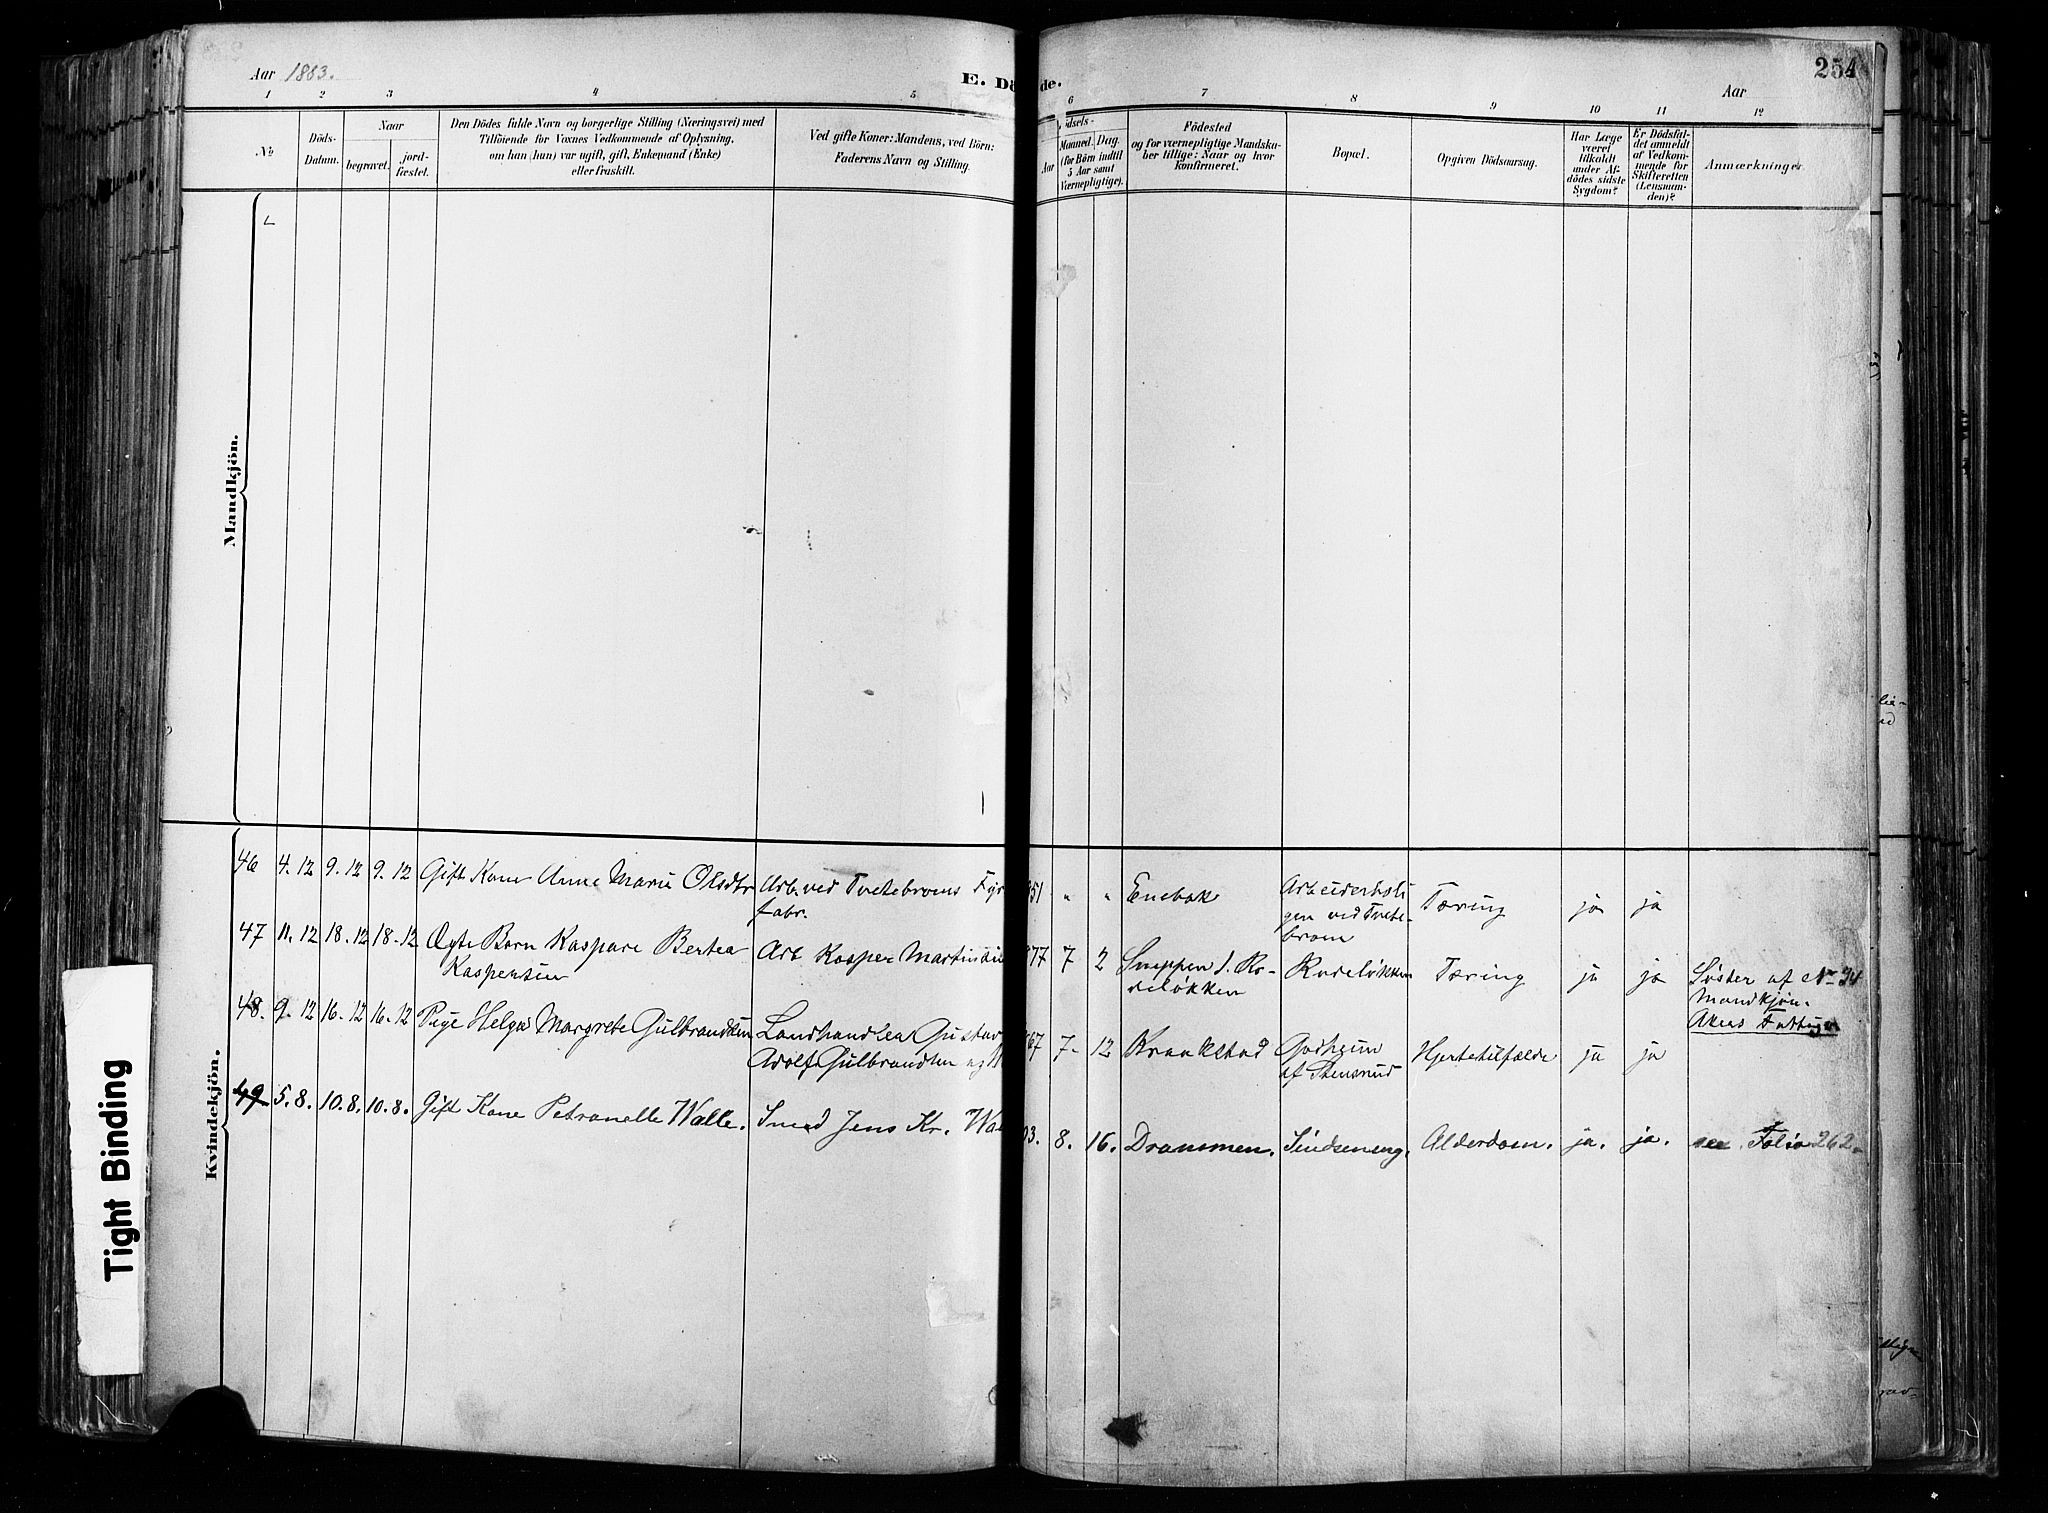 Aar 1883.
E. Dö
de.
254
Aar
1 2 3 4 5 6 7 8 9 10 11 12
No
Döds-
Datum.
Naar
begravet.
jord-
fæstet.
Den Dödes fulde Navn og borgerlige Stilling (Næringsvei) med
Tilföiende for Voxnes Vedkommende af Oplysning,
om han (hun) var ugift, gift, Enkemand (Enke)
eller fraskilt.
Ved gifte Koner: Mandens, ved Börn:
Faderens Navn og Stilling.
ödsels-
Aar
Maaned.
Dag.
(for Börn indtil
5 Aar samt
Værnepligtige).
Födested
og for værnepligtige Mandska-
ber tillige: Naar og hvor
konfirmeret.
Bopæl.
Opgiven Dödsaarsag.
Har Læge
været
tilkaldt
under Af-
dödes sidste
Sygdom?
Er Dödsfal-
det anmeldt
af Vedkom-
mende for
Skifteretten
(Lensman-
den)?
Anmærkninger.
Mandkjön.
Kvindekjön.
46 4.12 9.12 9.12 Gift Kone Anne Marie Olsdtr Arb. ved Tvetebroens Fyr
fabr.
851 " " Enebak
Arbeiderboli
gen ved Tvete-
broen
Tæring ja ja
47 11.12 18.12 18.12 Ægte Barn Kaspare Bertea
Kaspersen
Arb Kasper Martinsen
877 7 2
Sneppen i. Ro-
deløkken
Rodeløkken Tæring ja ja
Søster af No 34
Mandkjøn.
Akers Fattigv
48. 9.12 16.12 16.12 Pige Helga Margrete Gulbrandsen
Landhandlea Gustav
Adolf Gulbrandsen og H
867 7. 12 Kraakstad
Godheim
af Stensrud
Hjertetilfælde ja ja
49 5.8. 10.8. 10.8. Gift Kone Petronelle Walle. Smed Jens Kr. Wal
03. 8. 16. Drammen. Sindseneng. Alderdom. ja. ja. see Folio 262.
Tight Binding